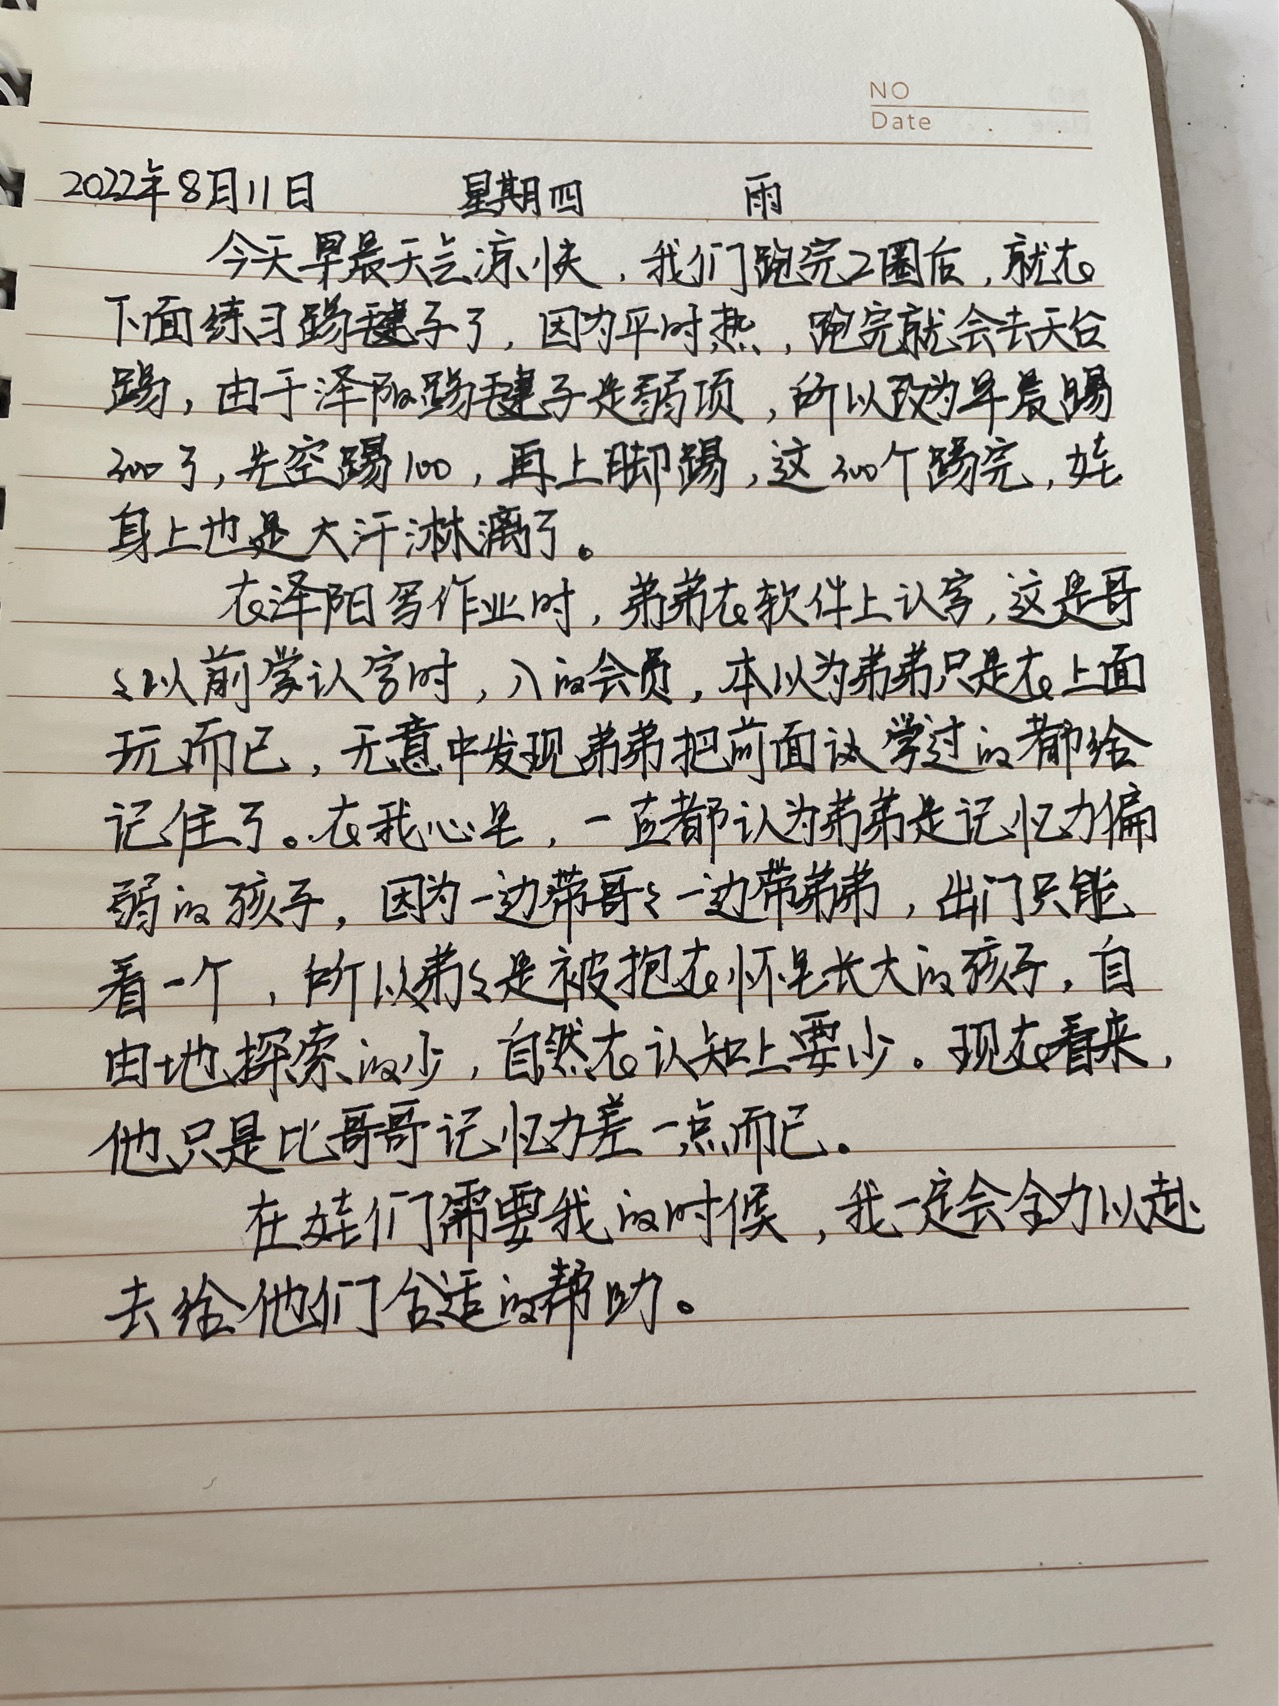 NO
Date
2022年8月11日 星期四 雨
今天早晨天气凉快，我们跑完2圈后，就在
下面练习踢毽子了，因为平时热，跑完就会去天台
踢，由于泽阳踢毽子是弱项，所以改为早晨踢
300了，先空踢100，再上脚踢，这300个踢完，娃
身上也是大汗淋漓了。
在泽阳写作业时，弟弟在软件上认字，这是哥
々以前学认字时，入的会员，本以为弟弟只是在上面
玩而已，无意中发现弟弟把前面认学过的都给
记住了。在我心里，一直都认为弟弟是记忆力偏
弱的孩子，因为一边带哥々一边带弟弟，出门只能
看一个，所以弟々是被抱在怀里长大的孩子，自
由地探索的少，自然在认知上要少。现在看来，
他只是比哥哥记忆力差一点而已。
在娃们需要我的时候，我一定会全力以赴
去给他们合适的帮助。